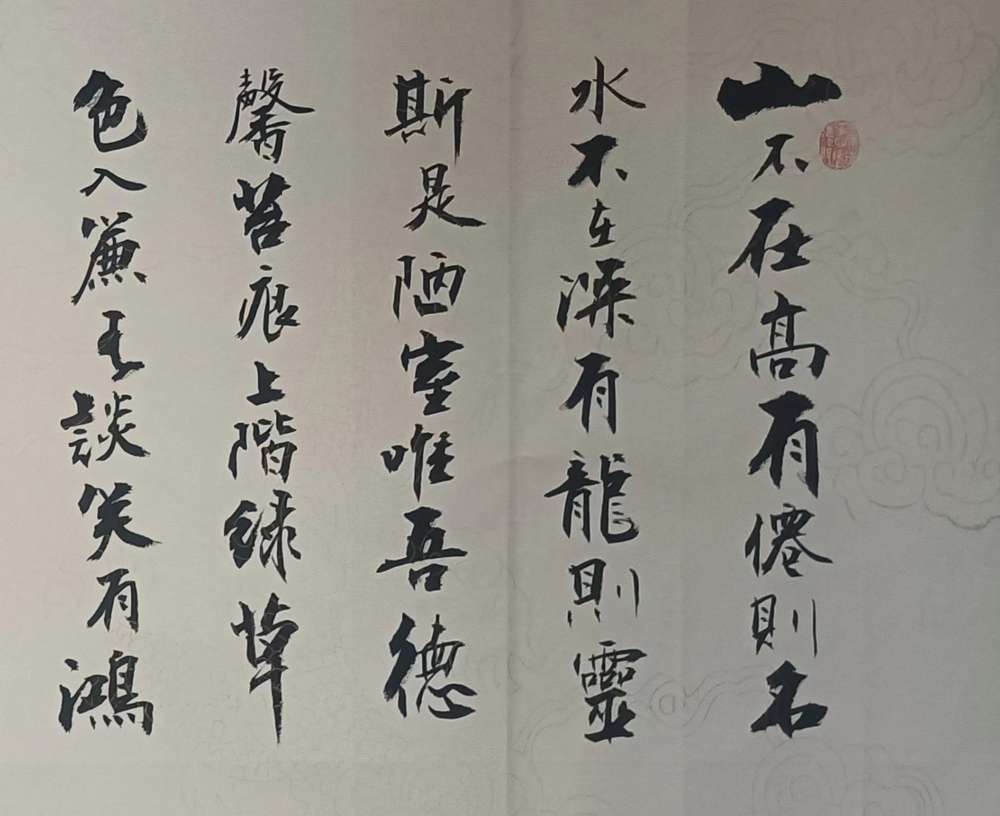 山不在高有僊則名
水不在深有龍則靈
斯是陋室唯吾德
馨苔痕上階緑草
色入簾青談笑有鴻